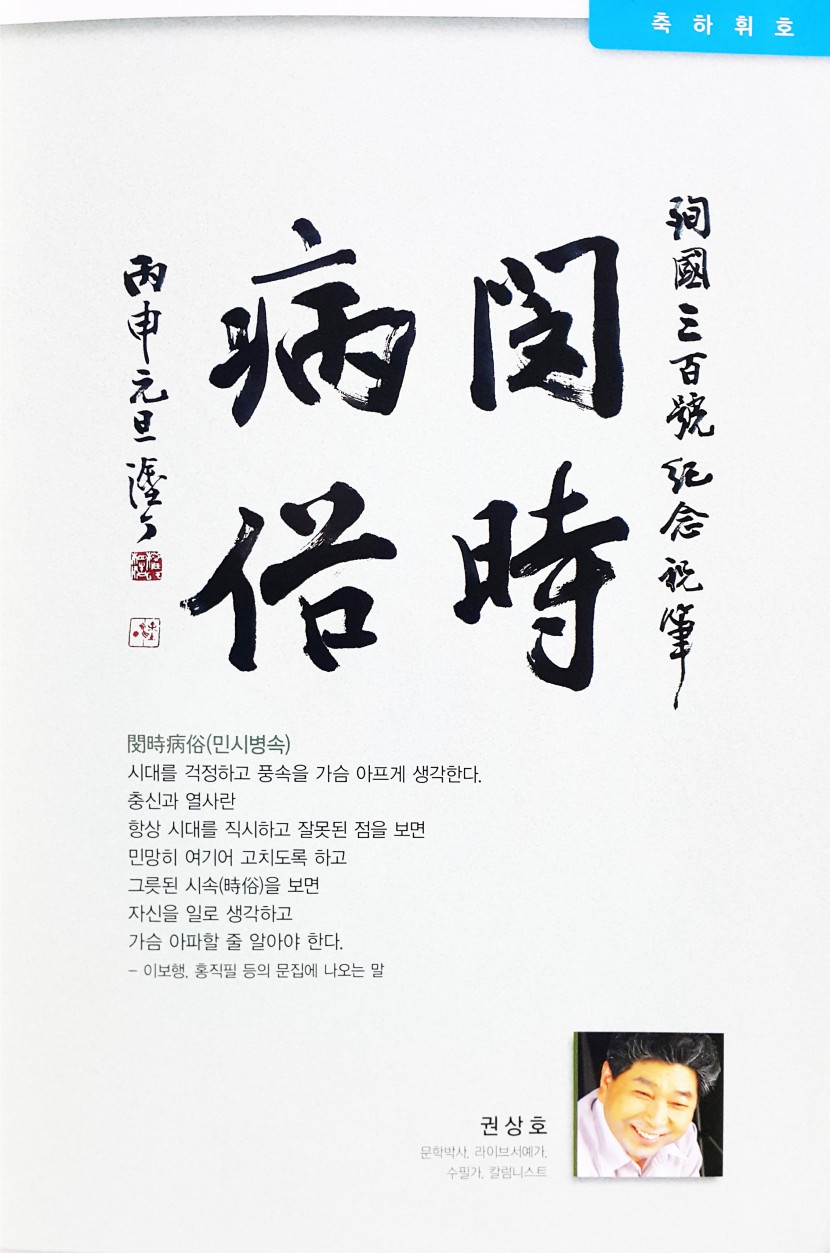 축하휘호
殉國三百號紀念祝筆
閔時
病俗
丙申元旦塗丁
閔時病俗(민시병속)
시대를 걱정하고 풍속을 가슴 아프게 생각한다.
충신과 열사란
항상 시대를 직시하고 잘못된 점을 보면
민망히 여기어 고치도록 하고
그릇된 시속(時俗)을 보면
자신을 일로 생각하고
가슴 아파할 줄 알아야 한다.
- 이보행, 홍직필 등의 문집에 나오는 말
권상호
문학박사, 라이브서예가,
수필가, 칼럼니스트